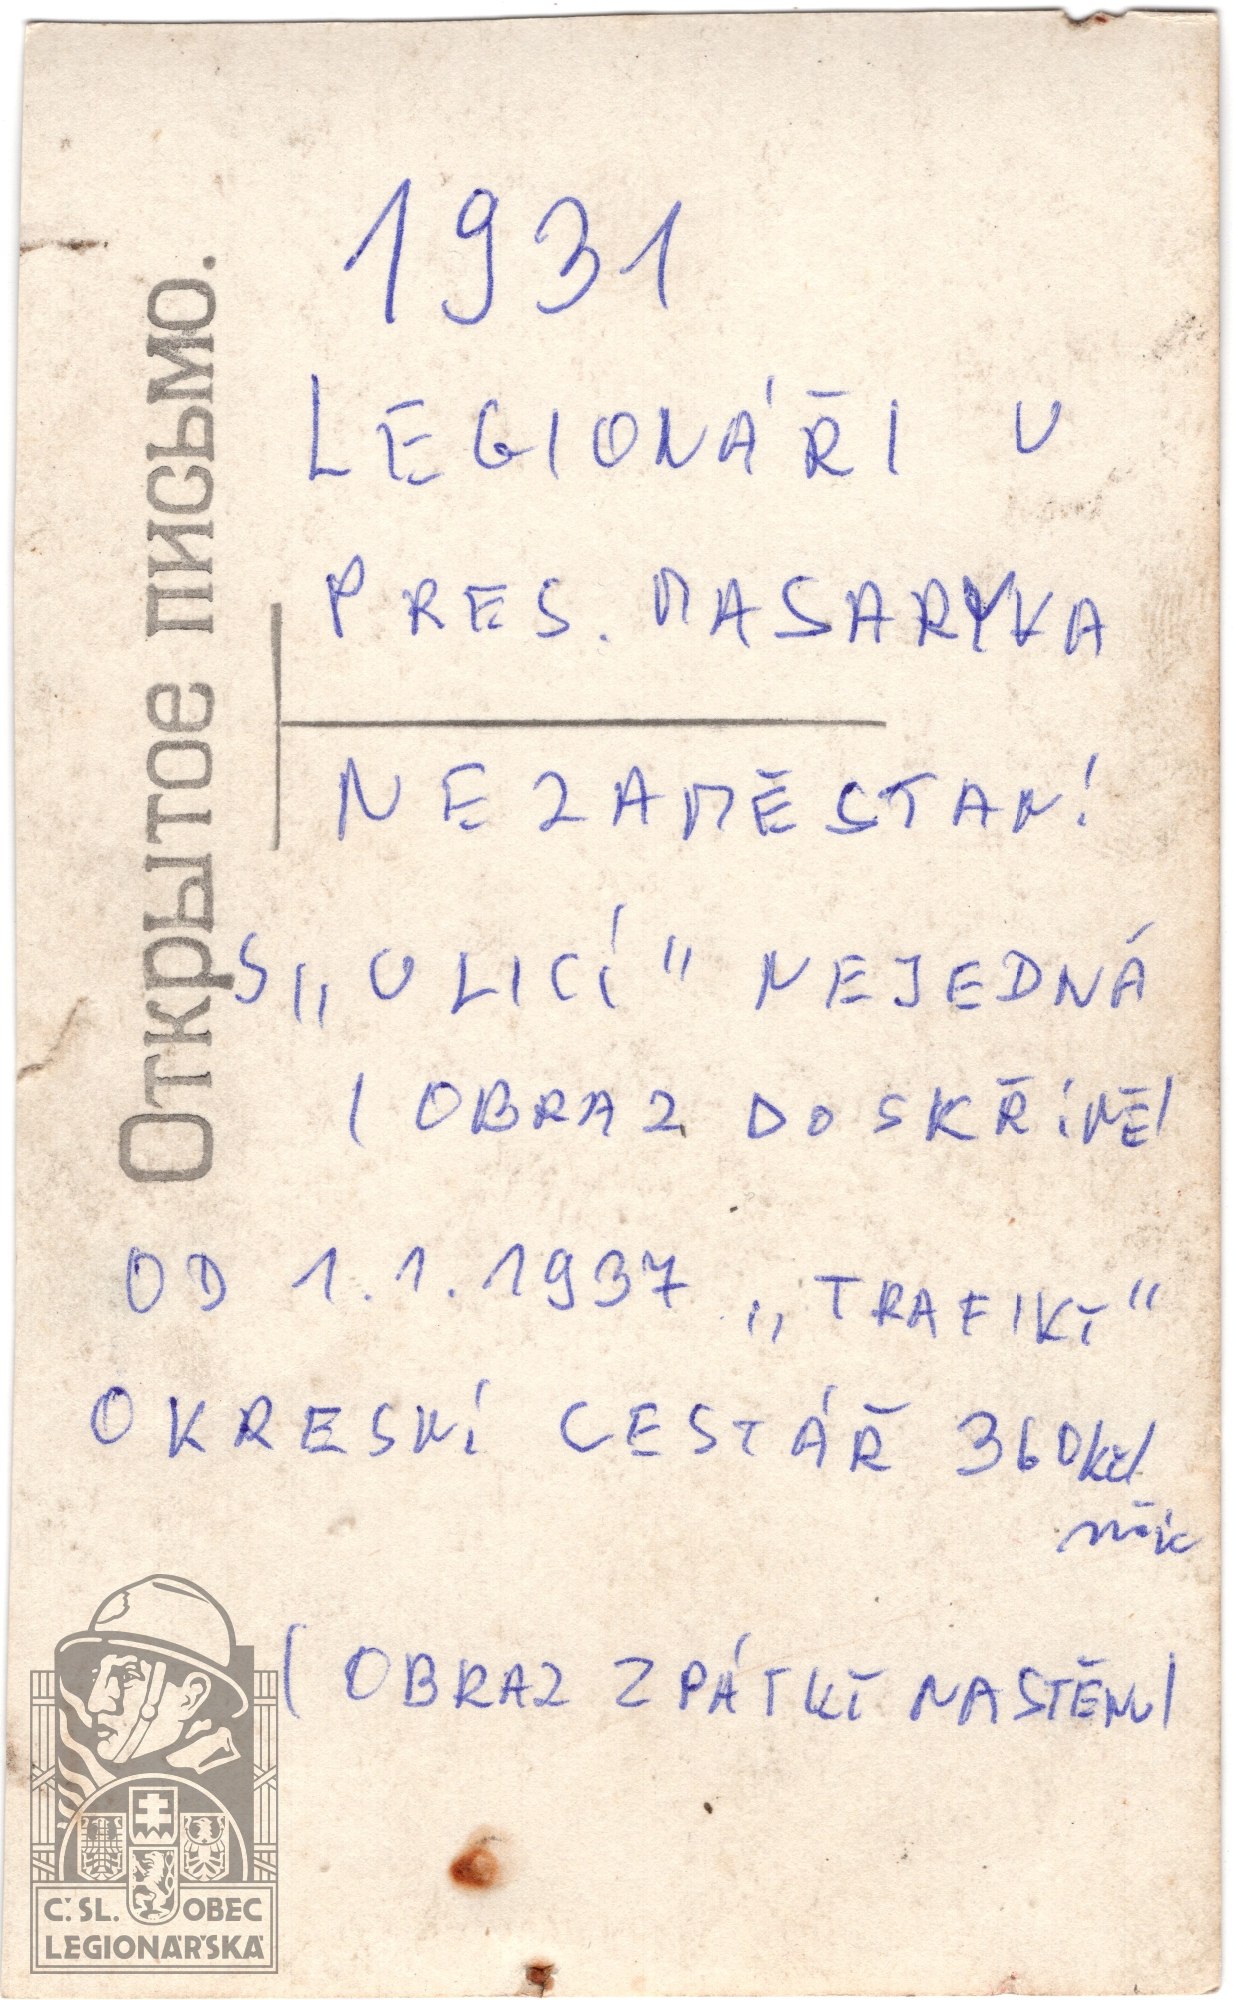 Открытое письмо.
1931
LEGIONÁŘI U
PRES. MASARYKA
NEZAMĚSTANÍ
S „ULICÍ“ NEJEDNÁ
(OBRAZ DO SKŘÍNĚ)
OD 1.1.1937 „TRAFIKY“
OKRESNÍ CESTÁŘ 360 Kč/
(OBRAZ ZPÁTKY NA STĚNU)
Č.SL. OBEC
LEGIONÁŘSKÁ